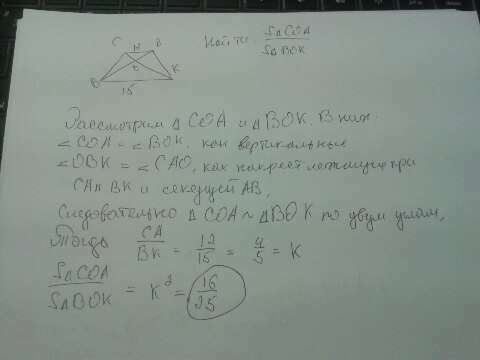 Найти: S△COA / S△BOK
C N B
O
K
15
Рассмотрим △COA и △BOK. В них:
∠COA = ∠BOK, как вертикальные
∠OBK = ∠CAO, как накрест лежащие при
CA и BK и секущей AB,
Следовательно △COA ~ △BOK по двум углам,
Тогда CA / BK = 12 / 15 = 4 / 5 = K
S△COA / S△BOK = K² = 16 / 25